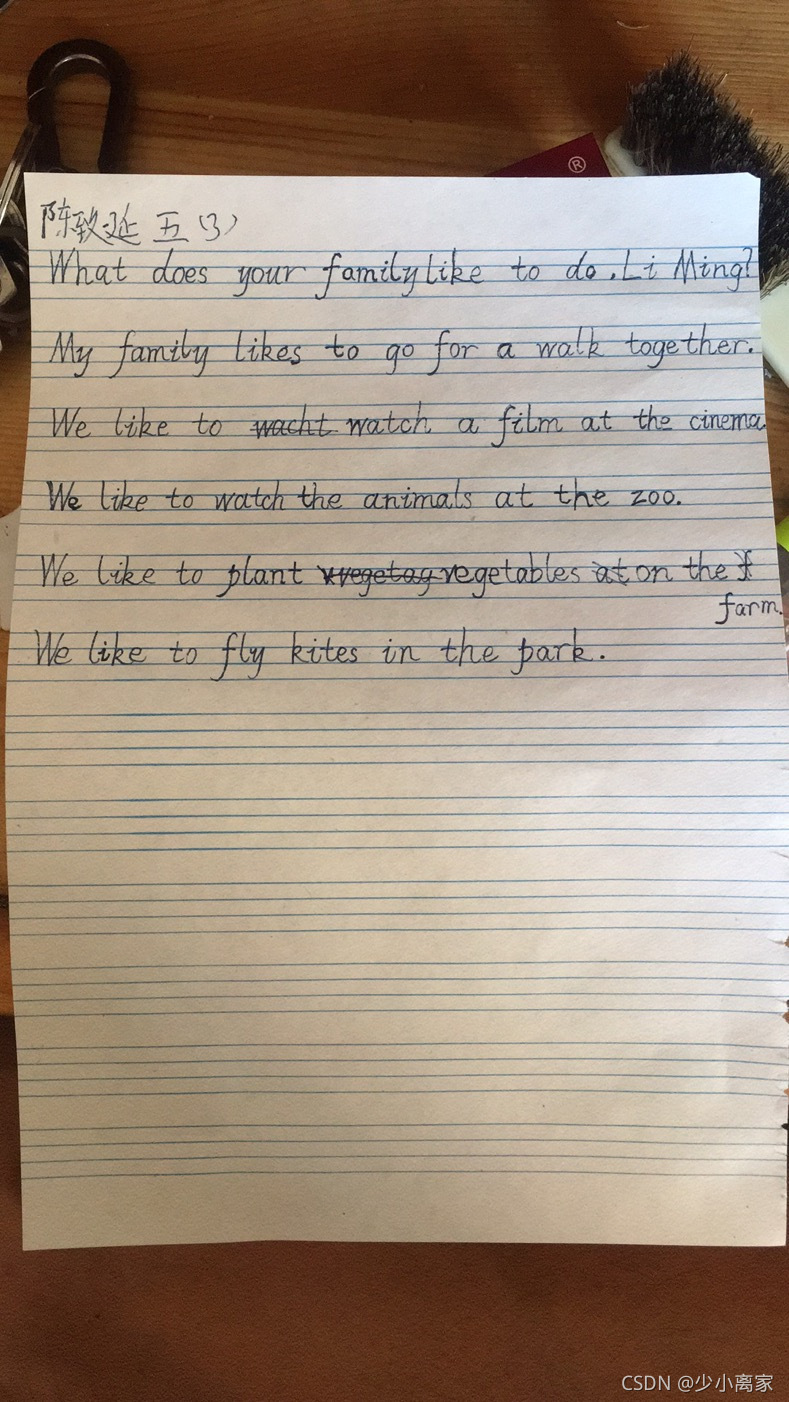 ®
陈致延 五(3)
What does your family like to do. Li Ming?
My family likes to go for a walk together.
We like to wacht watch a film at the cinema.
We like to watch the animals at the zoo.
We like to plant vegetables at on the f
farm.
We like to fly kites in the park.
CSDN @少小离家